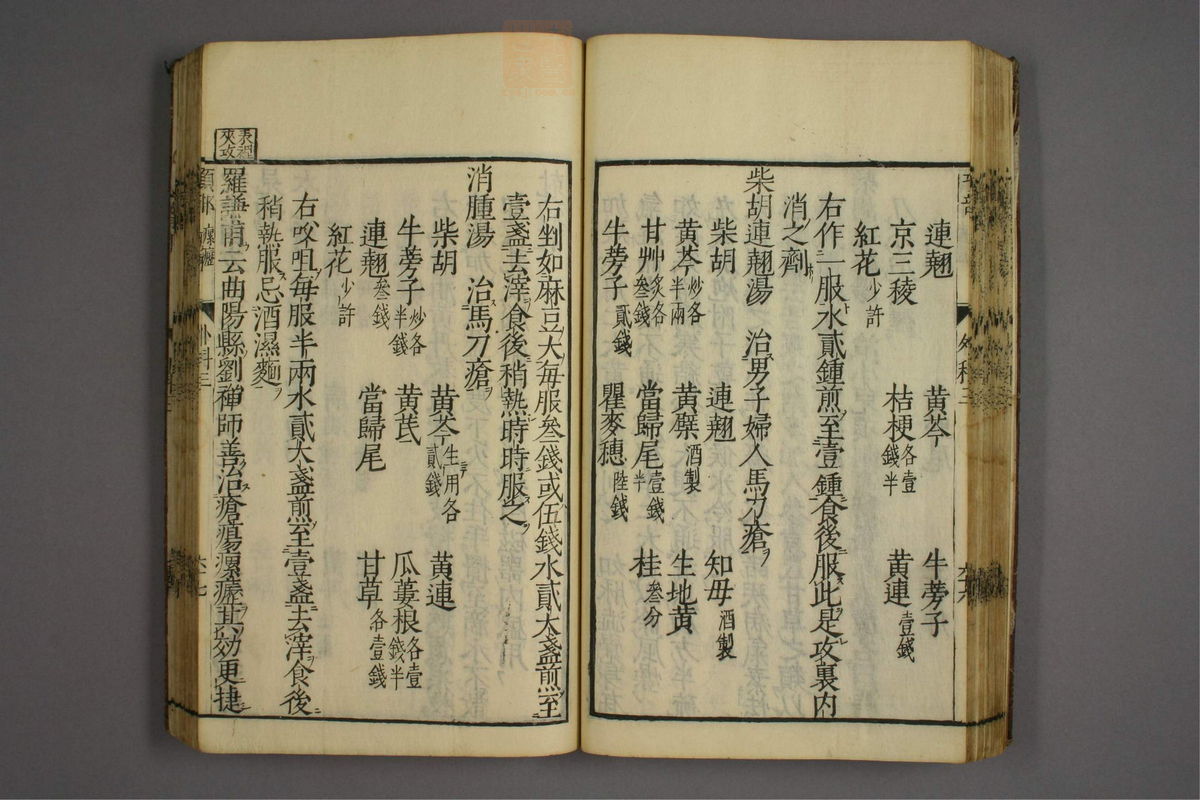 連翹 黃芩 牛蒡子
京三稜 桔梗各壹錢半 黃連壹錢
紅花少許
右作一服水貳鍾煎至壹鍾食後服此是攻裏内
消之劑
柴胡連翹湯 治男子婦人馬刀瘡
柴胡 連翹 知母酒製
黃芩炒各半兩 黃檗酒製 生地黃
甘艸炙各叁錢 當歸尾壹錢半 桂叁分
牛蒡子貳錢 瞿麥穗陸錢
右剉如麻豆大每服叁錢或伍錢水貳大盞煎至
壹盞去滓食後稍熱時時服之
消腫湯 治馬刀瘡
柴胡 黃芩生用各貳錢 黃連
牛蒡子炒各半錢 黃芪 瓜蔞根各壹錢半
連翹叁錢 當歸尾 甘草各壹錢
紅花少許
右㕮咀每服半兩水貳大盞煎至壹盞去滓食後
稍執服忌酒濕麵
表裡夾攻
羅謙甫云曲陽縣劉禅師善治瘡瘍瘰癧其効更捷
外科三